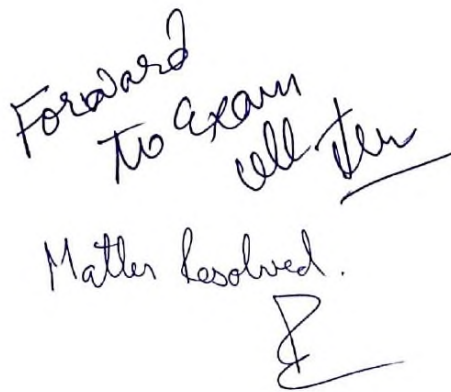 Forward
To Exam
cell
Matter Resolved.